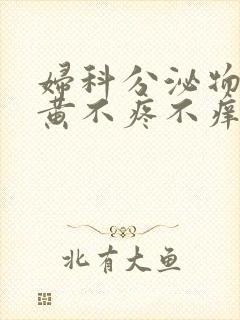 婦科分泌物
黄不疼不痒
北有大鱼